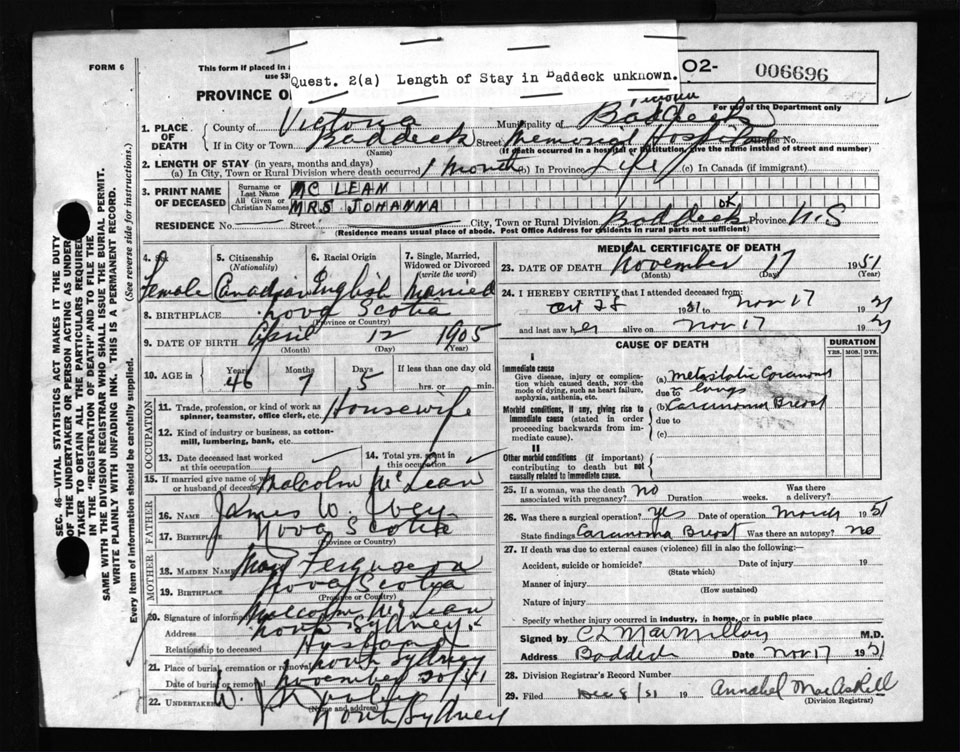 FORM 6
This form if placed in a
use $3
Quest. 2(a) Length of Stay in Baddeck unknown.
O2-
006696
PROVINCE O
For use of the Department only
1. PLACE OF DEATH
County of Victoria
Municipality of Victoria
If in City or Town Baddeck
(Name)
Street Memorial Hospital House No.
Baddeck
(If death occurred in a hospital or institution, give the name instead of street and number)
2. LENGTH OF STAY (in years, months and days)
(a) In City, Town or Rural Division where death occurred 1 month (b) In Province Life (c) In Canada (if immigrant)
3. PRINT NAME OF DECEASED
Surname or Last Name MC LEAN
All Given or Christian Names MRS JOHANNA
RESIDENCE No. Street City, Town or Rural Division Baddeck OK Province N.S
(Residence means usual place of abode. Post Office Address for residents in rural parts not sufficient)
4. Sex
Female
5. Citizenship
(Nationality)
Canadian
6. Racial Origin
English
7. Single, Married, Widowed or Divorced
(write the word)
Married
8. BIRTHPLACE Nova Scotia
(Province or Country)
9. DATE OF BIRTH April 12 1905
(Month) (Day) (Year)
10. AGE in
Years Months Days If less than one day old
46 7 5 hrs. or min.
OCCUPATION
11. Trade, profession or kind of work as spinner, teamster, office clerk, etc. Housewife
12. Kind of industry or business, as cotton-mill, lumbering, bank, etc.
13. Date deceased last worked at this occupation
14. Total yrs. spent in this occupation
15. If married give name of wife or husband of deceased Malcolm McLean
FATHER
16. Name James W. Ivey
17. Birthplace Nova Scotia
(Province or Country)
MOTHER
18. MAIDEN NAME Mary Ferguson
19. BIRTHPLACE Nova Scotia
(Province or Country)
20. Signature of informant Malcolm McLean
Address North Sydney
Relationship to deceased Husband
21. Place of burial, cremation or removal North Sydney
Date of burial or removal November 20/41
22. UNDERTAKER
(Name and address)
North Sydney
MEDICAL CERTIFICATE OF DEATH
23. DATE OF DEATH November 17 1951
(Month) (Day) (Year)
24. I HEREBY CERTIFY that I attended deceased from:
Oct 28 1951 to Nov 17 1951
and last saw her alive on Nov 17 1951
CAUSE OF DEATH
DURATION
YRS. MOS. DYS.
I
Immediate cause
Give disease, injury or complication which caused death, not the mode of dying, such as heart failure, asphyxia, asthenia, etc.
(a) Metastatic Carcinoma
due to lungs
Morbid conditions, if any, giving rise to immediate cause (stated in order proceeding backwards from immediate cause).
(b) Carcinoma Breast
due to
(c)
II
Other morbid conditions (if important) contributing to death but not causally related to immediate cause.
25. If a woman, was the death associated with pregnancy? no Duration weeks. Was there a delivery?
26. Was there a surgical operation? yes Date of operation March 1951
State findings Carcinoma Breast Was there an autopsy? no
27. If death was due to external causes (violence) fill in also the following:—
Accident, suicide or homicide? Date of injury 19
(State which)
Manner of injury
(How sustained)
Nature of injury
Specify whether injury occurred in industry, in home, or in public place
Signed by C L MacMillan M.D.
Address Baddeck Date Nov 17 1951
28. Division Registrar's Record Number
29. Filed Dec 8/51 19 Annabel MacAskill
(Division Registrar)
SEC. 46—VITAL STATISTICS ACT MAKES IT THE DUTY
OF THE UNDERTAKER OR PERSON ACTING AS UNDER
TAKER TO OBTAIN ALL THE PARTICULARS REQUIRED
IN THE "REGISTRATION OF DEATH" AND TO FILE THE
SAME WITH THE DIVISION REGISTRAR WHO SHALL ISSUE THE BURIAL PERMIT.
WRITE PLAINLY WITH UNFADING INK. THIS IS A PERMANENT RECORD.
Every item of information should be carefully supplied. (See reverse side for instructions.)